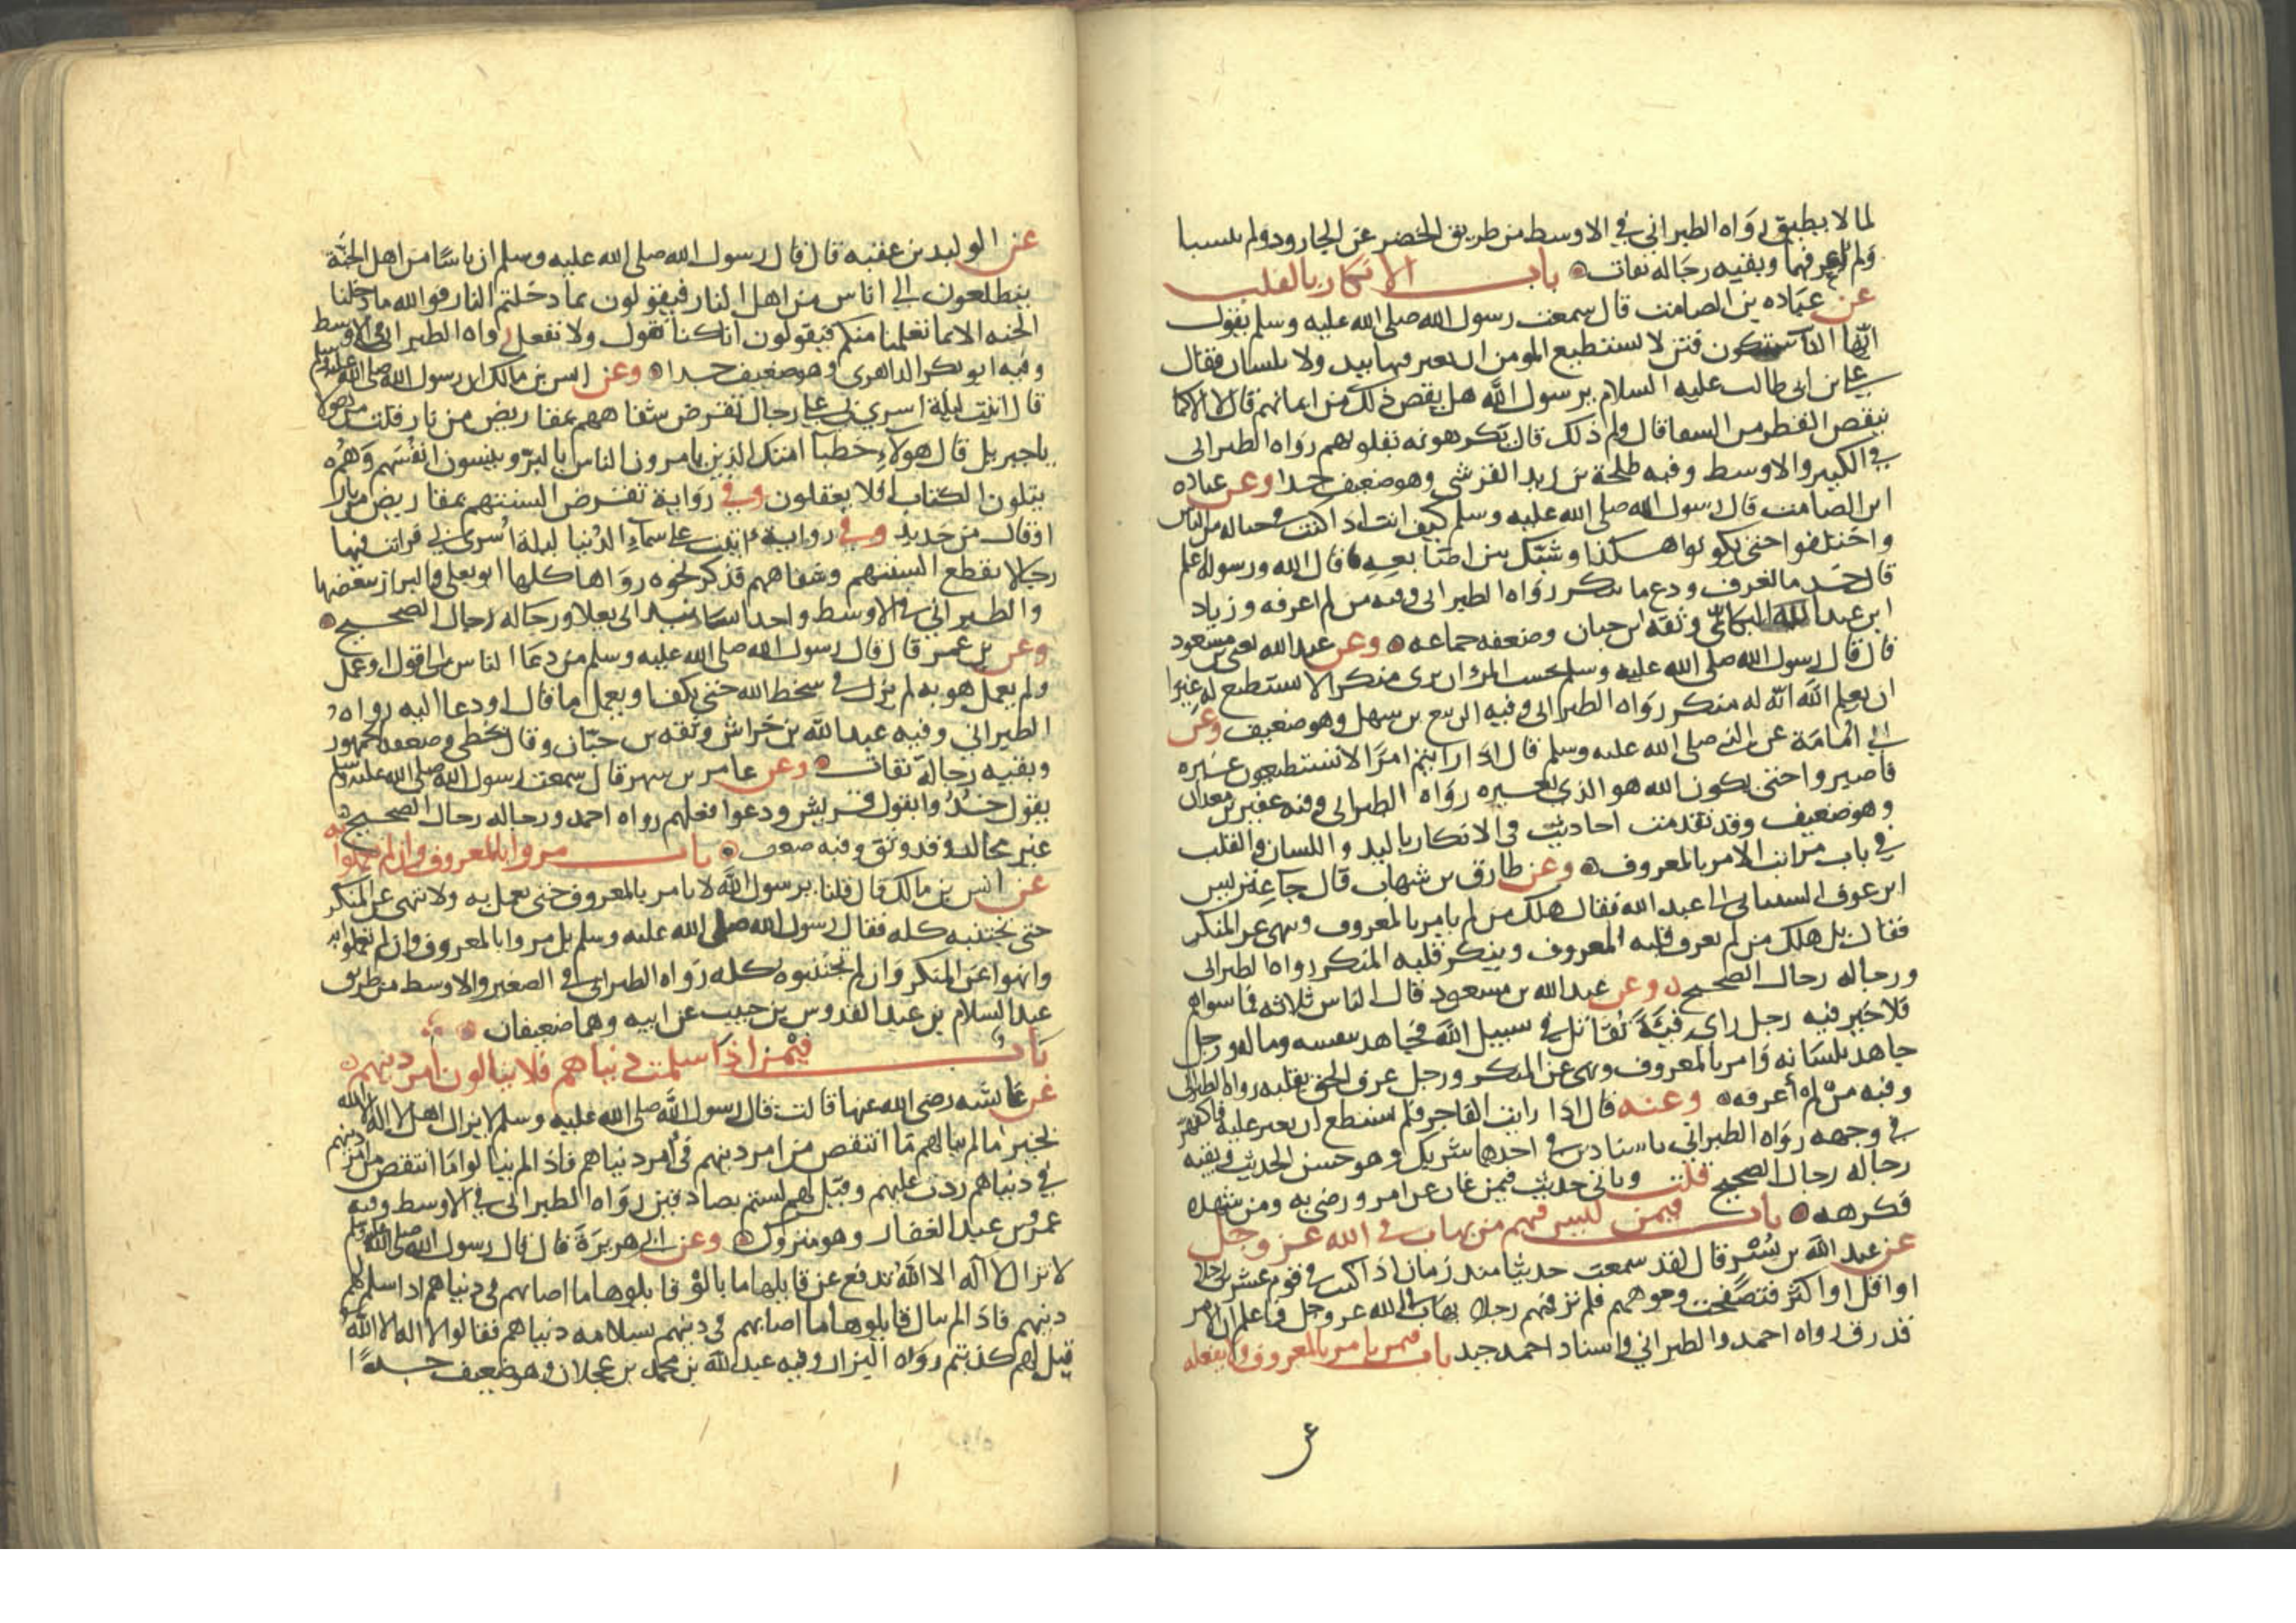 لما لا يطيق رواه الطبراني في الاوسط من طريق الخضر عن الجارود ولم ينسبا
ولم اعرفهما وبقيه رجاله ثقات باب الانكار بالقلب
عن عباده بن الصامت قال سمعت رسول الله صلى الله عليه وسلم يقول
انها ستكون فتن لا يستطيع المومن ان يغير فيها بيد ولا بلسان فقال
علي بن ابي طالب عليه السلام يرسول الله هل ينقص ذلك من ايمانهم قال لا الا كما
ينقص القطر من السقا قال ولم ذلك قال يكرهونه بقلوبهم رواه الطبراني
في الكبير والاوسط وفيه طلحة بن زيد القرشي وهو ضعيف جدا وعن عباده
ابن الصامت قال رسول الله صلى الله عليه وسلم كيف انت اذا كنت في حثاله من الناس
واختلفوا حتى يكونوا هكذا وشبك بين اصابعه قال الله ورسوله اعلم
قال خد ما تعرف ودع ما تنكر رواه الطبراني وفيه من لم اعرفه وزياد
ابن عبد الله البكائي وثقه ابن حبان وضعفه جماعه وعن عبد الله يعني بن مسعود
قال قال رسول الله صلى الله عليه وسلم بحسب المرء ان يرى منكرا لا يستطيع له غيرا
ان يعلم الله انه له منكر رواه الطبراني وفيه الربيع بن سهل وهو ضعيف وعن
ابي امامة عن النبي صلى الله عليه وسلم قال اذا رايتم امرا لا تستطيعون غيره
فاصبروا حتى يكون الله هو الذي يغيره رواه الطبراني وفيه عفير بن معدان
وهو ضعيف وقد تقدمت احاديث في الانكار باليد واللسان والقلب
في باب مراتب الامر بالمعروف وعن طارق بن شهاب قال جا عتريس
ابن عرقوب الشيباني الى عبد الله فقال هلك من لم يامر بالمعروف وينهى عن المنكر
فقال بل هلك من لم يعرف قلبه المعروف وينكر قلبه المنكر رواه الطبراني
ورجاله رجال الصحيح وعن عبد الله بن مسعود قال الناس ثلاثه فما سواهم
فلا خير فيه رجل راى فيئة تقاتل في سبيل الله فجاهد بنفسه وماله ورجل
جاهد بلسانه وامر بالمعروف ونهى عن المنكر ورجل عرف الحق بقلبه رواه الطبراني
وفيه من لم اعرفه وعنه قال اذا رايت الفاجر فلم تستطع ان تغير عليه فاكفهر
في وجهه رواه الطبراني باسنادين في احدهما شريك وهو حسن الحديث وبقيه
رجاله رجال الصحيح قلت وياتي حديث فيمن غاب عن امر ورضي به ومن شهده
فكرهه باب فيمن ليس فيهم من يهاب في الله عز وجل
عن عبد الله بن بسر قال لقد سمعت حديثا مند زمان اذا كنت في قوم عشرين رجلا
او اقل او اكثر فتصفحت وجوههم فلم تر فيهم رجلا يهاب في الله عز وجل فاعلم ان الامر
قد رق رواه احمد والطبراني واسناد احمد جيد باب فيمن يامر بالمعروف ولا يفعله
عن الوليد بن عقبه قال قال رسول الله صلى الله عليه وسلم ان ناسا من اهل الجنة
يتطلعون الى اناس من اهل النار فيقولون بما دخلتم النار فوالله ما دخلنا
الجنه الا بما تعلمنا منكم فيقولون انا كنا نقول ولا نفعل رواه الطبراني في الاوسط
وفيه ابو بكر الداهري وهو ضعيف جدا وعن انس بن مالك ان رسول الله صلى الله عليه وسلم
قال اتيت ليلة اسري بي على رجال تقرض شفاههم بمقاريض من نار قلت من هولا
ياجبريل قال هولاء خطبا امتك الذين يامرون الناس بالبر وينسون انفسهم وهم
يتلون الكتاب افلا يعقلون وفي رواية تقرض السنتهم بمقاريض من نار
او قال من حديد وفي رواية اتيت على سماء الدنيا ليلة اسري بي فرايت فيها
رجالا تقطع السنتهم وشفاههم فذكر نحوه رواها كلها ابو يعلى والبزار ببعضها
والطبراني في الاوسط واحد اسانيد ابي يعلا رجاله رجال الصحيح
وعن بن عمر قال قال رسول الله صلى الله عليه وسلم من دعا الناس الى قول او عمل
ولم يعمل هو به لم يزل في سخط الله حتى يكف او يعمل ما قال او دعا اليه رواه
الطبراني وفيه عبد الله بن خراش وثقه بن حبان وقال يخطي وضعفه الجمهور
وبقيه رجاله ثقات وعن عامر بن شهر قال سمعت رسول الله صلى الله عليه وسلم
يقول خذوا بقول قريش ودعوا فعلهم رواه احمد ورجاله رجال الصحيح
غير مجالد وقد وثق وفيه ضعف باب مروا بالمعروف وان لم تعملوا به
عن انس بن مالك قال قلنا يرسول الله لا نامر بالمعروف حتى نعمل به ولا ننهى عن المنكر
حتى نجتنبه كله فقال رسول الله صلى الله عليه وسلم بل مروا بالمعروف وان لم تعملوا به
وانهوا عن المنكر وان لم تجتنبوه كله رواه الطبراني في الصغير والاوسط من طريق
عبد السلام بن عبد القدوس بن حبيب عن ابيه وهما ضعيفان
باب فيمن اذا سلمت دنياهم فلا يبالون امر دينهم
عن عائشه رضى الله عنها قالت قال رسول الله صلى الله عليه وسلم لا يزال اهل لا اله الا الله
بخير ما لم يبالهم ما انتقص من امر دينهم في امر دنياهم فاذا لم يبالوا ما انتقص من امر دينهم
في دنياهم ردت عليهم وقيل لهم لستم بصادقين رواه الطبراني في الاوسط وفيه
عمرو بن عبد الغفار وهو متروك وعن ابي هريرة قال قال رسول الله صلى الله عليه وسلم
لا تزال لا اله الا الله تدفع عن قايلها ما بالى قايلوها ما اصابهم في دنياهم اذا سلم لهم
دينهم فاذا لم يبال قايلوها ما اصابهم في دينهم بسلامه دنياهم فقالوا لا اله الا الله
قيل لهم كذبتم رواه البزار وفيه عبد الله بن محمد بن عجلان وهو ضعيف جدا